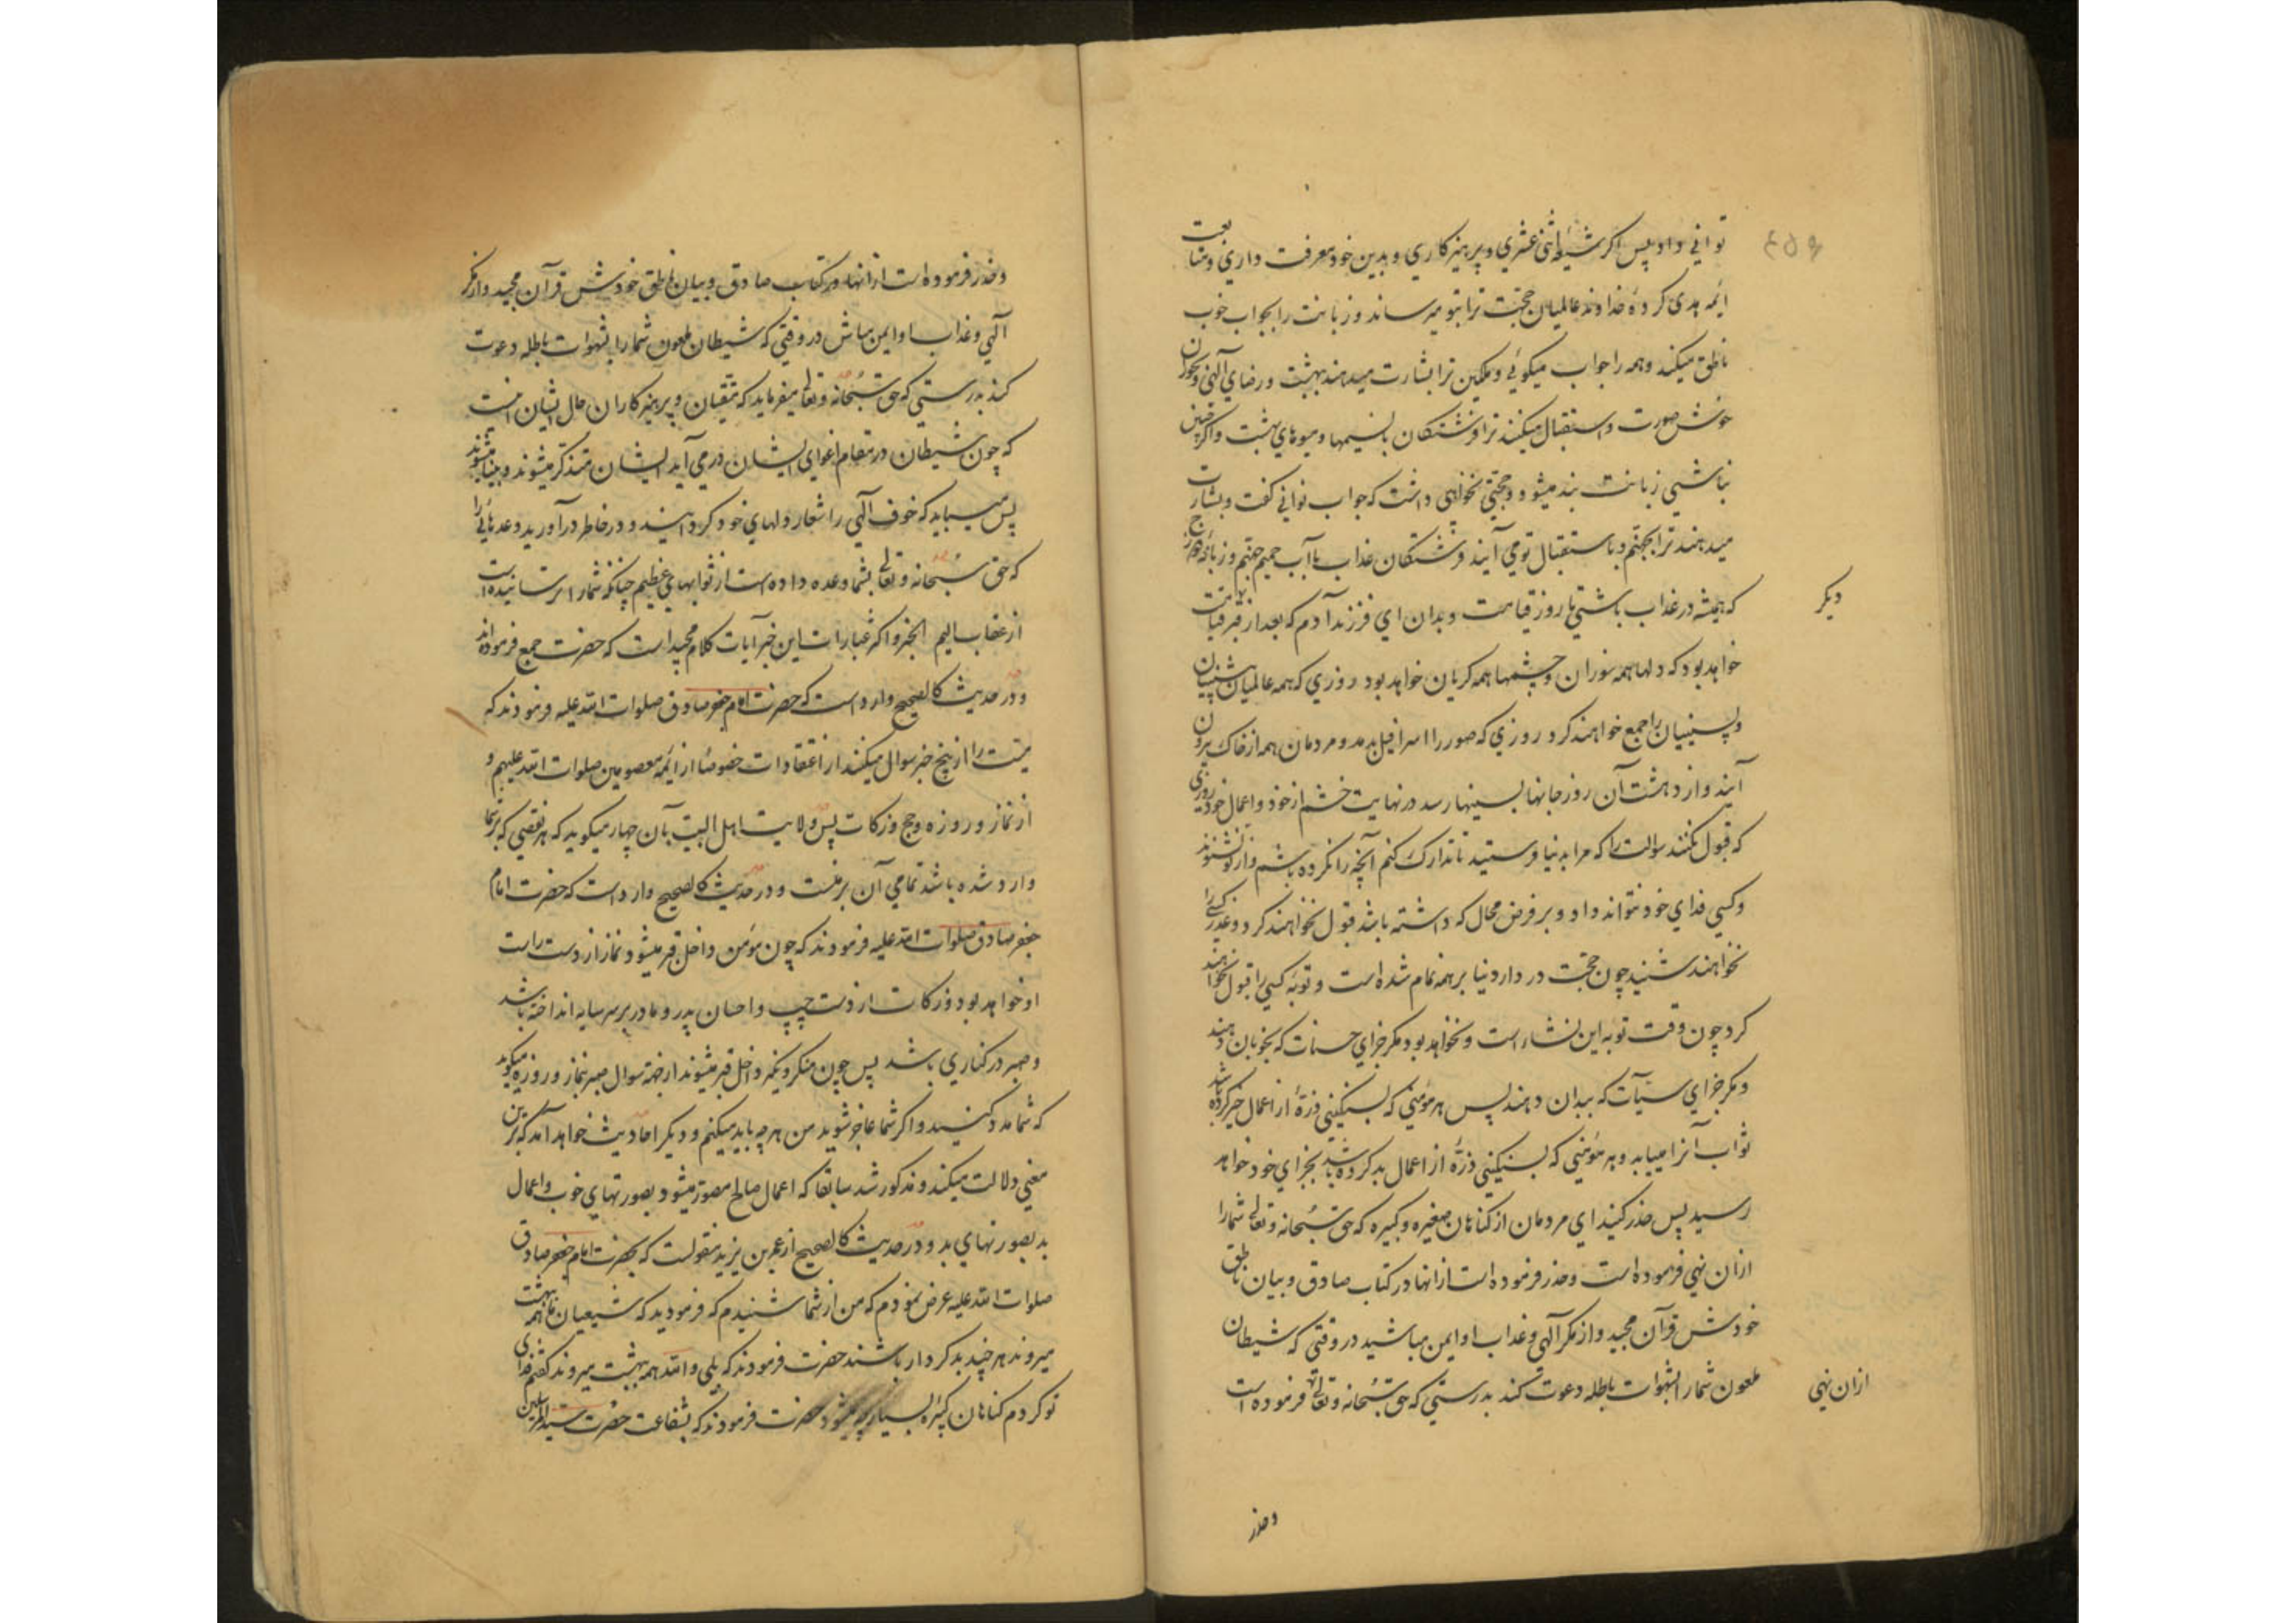 توانی داد پس اگر شیعه اثنی عشری و پرهیزکاری و بدین خود معرفت داری و متابعت
ائمه هدی کرده خداوند عالمیان حجت ترا بتو میرساند و زبانت را بجواب خوب
ناطق میکند و همه را جواب میگوئی و ملکین ترا بشارت میدهند ببهشت و رضای آلهی و بحوران
خوش صورت و استقبال میکنند ترا فرشتگان با نسیمها و میوهای بهشت و اگر چنین
نباشی زبانت بند میشود و حجتی نخواهی داشت که جواب توانی گفت و بشارت
میدهند ترا بجهنم و باستقبال تو می آیند فرشتگان عذاب با آب حمیم جهنم و
که همیشه در عذاب باشی تا روز قیامت و بدان ای فرزند آدم که بعد از قبر قیامت
دیگر
خواهد بود که دلها همه سوزان و چشمها همه گریان خواهد بود روزی که همه عالمیان پیشینیان
و پسینیان را جمع خواهند کرد روزی که صور را اسرافیل بدمد و مردمان همه از خاک بیرون
آیند و از دهشت آن روز جانها بسینها رسد در نهایت خشم از خود و اعمال خود روزی
که قبول نکنند سوالت را که مرا بدنیا فرستید تا تدارک کنم آنچه را نکرده باشم و از تو نشنوند
و کسی فدای خود نتواند داد و بر فرض محال که داشته باشد قبول نخواهند کرد و عذر کسی را
نخواهند شنید چون حجت در دار دنیا بر همه تمام شده است و توبه کسی را قبول نخواهند
کرد چون وقت توبه این نشاء است و نخواهد بود مگر جزای حسنات که بخوبان دهند
و مگر جزای سیآت که ببدان دهند پس هر مؤمنی که بسنگینی ذرهٔ از اعمال خیر کرده باشد
ثواب آنرا میبابد و هر مؤمنی که بسنگینی ذرهٔ از اعمال بد کرده باشد بجزای خود خواهد
رسید پس حذر کنید ای مردمان از گناهان صغیره و کبیره که حق سبحانه و تعالی شما را
ازان نهی فرموده است و حذر فرموده است ازانها در کتاب صادق و بیان ناطق
خودش قرآن مجید و از مکر آلهی و عذاب او ایمن مباشید در وقتی که شیطان
ملعون شما را بشهوات باطله دعوت کند بدرستی که حق سبحانه و تعالی فرموده است
ازان نهی
و حذر
و حذر فرموده است ازانها در کتاب صادق و بیان ناطق خودش قرآن مجید و از مکر
آلهی و عذاب او ایمن مباش در وقتی که شیطان ملعون شما را بشهوات باطله دعوت
کند بدرستی که حق سبحانه و تعالی میفرماید که متقیان و پرهیزکاران حال ایشان اینست
که چون شیطان در مقام اغوای ایشان در می آید ایشان متذکر میشوند و بینا میشوند
پس میباید که خوف آلهی را شعار دلهای خود گردانید و در خاطر درآورید وعدهائی را
که حق سبحانه و تعالی بشما وعده داده است از ثوابهای عظیم چنانکه شما را ترسانیده است
از عقاب الیم الخبر و اکثر عبارات این خبر آیات کلام مجید است که حضرت جمع فرموده اند
و در حدیث کالصحیح وارد است که حضرت امام جعفر صادق صلوات الله علیه فرمودند که
میت را از پنج چیز سوال میکنند از اعتقادات خصوصا از ائمه معصومین صلوات الله علیهم و
از نماز و روزه و حج و زکات پس ولایت اهل البیت بآن چهار میگوید که هر نقصی که بر شما
وارد شده باشد تمامی آن بر منست و در حدیث کالصحیح وارد است که حضرت امام
جعفر صادق صلوات الله علیه فرمودند که چون مؤمن داخل قبر میشود نماز از دست راست
او خواهد بود و زکات از دست چپ و احسان پدر و مادر بر سر سایه انداخته باشد
و صبر در کناری باشد پس چون منکر و نکیر داخل قبر میشوند از جهة سوال صبر بنماز و روزه میگوید
که شما مدد کنید و اگر شما عاجز شوید من هر چه باید میکنم و دیگر احادیث خواهد آمد که برین
معنی دلالت میکند و مذکور شد سابقا که اعمال صالح مصور میشود بصورتهای خوب و اعمال
بد بصورتهای بد و در حدیث کالصحیح از عمر بن یزید منقولست که بحضرت امام جعفر صادق
صلوات الله علیه عرض نمودم که من از شما شنیدم که فرمودید که شیعیان ما همه ببهشت
میروند هر چند بدکردار باشند حضرت فرمودند که بلی والله همه ببهشت میروند گفتم فدای
تو گردم گناهان کبیره بسیار چه میشود حضرت فرمودند که بشفاعت حضرت سید المرسلین